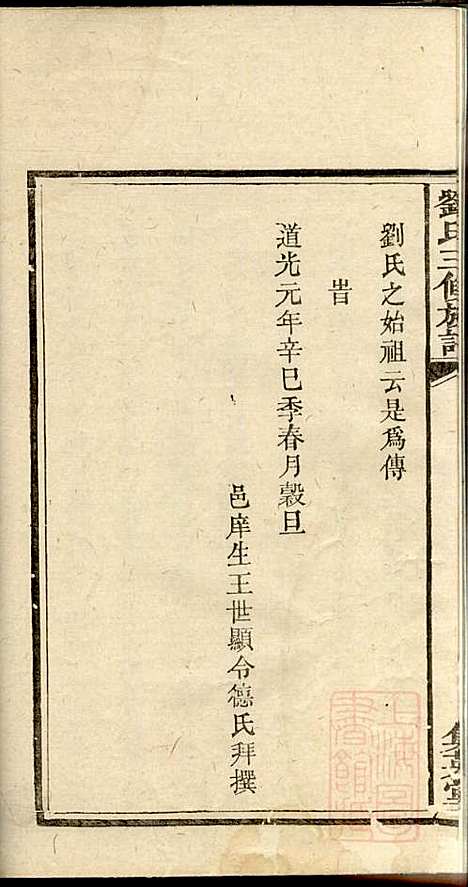 劉氏三修族譜
劉氏之始祖云是爲傳
旹
道光元年辛巳季春月穀旦
邑庠生王世顯令德氏拜撰
上海圖書館藏